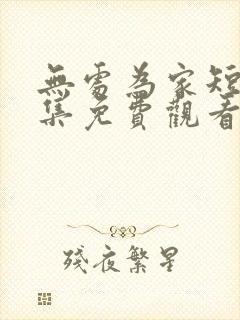 無處為家短
集免費觀看
殘夜繁星